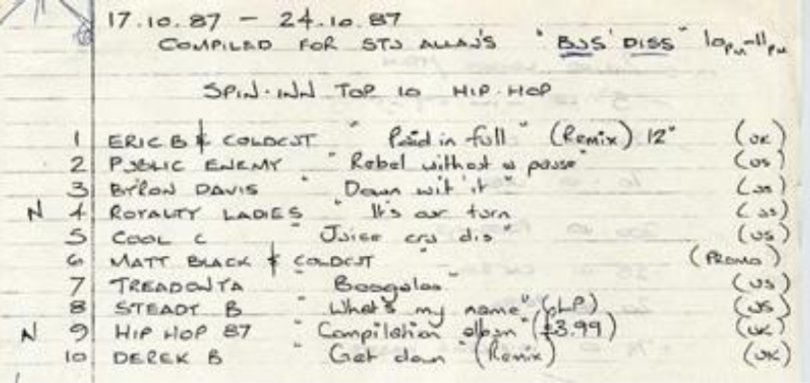 17.10.87 - 24.10.87
COMPILED FOR STU ALLAN'S "BUS DISS" 10pm-11pm
SPIN-INN TOP 10 HIP-HOP
1 ERIC B & COLDCUT "Paid in full" (Remix) 12" (UK)
2 PUBLIC ENEMY "Rebel without a pause" (US)
3 BYRON DAVIS "Down wit it" (US)
N 4 ROYALTY LADIES "It's our turn (US)
5 COOL C "Juice cru dis" (US)
6 MATT BLACK & COLDCUT (PROMO)
7 TREADONTA "Boogaloo" (US)
8 STEADY B "What's my name" (LP) (US)
N 9 HIP HOP 87 "Compilation album" (£3.99) (UK)
10 DEREK B "Get down" (Remix) (UK)